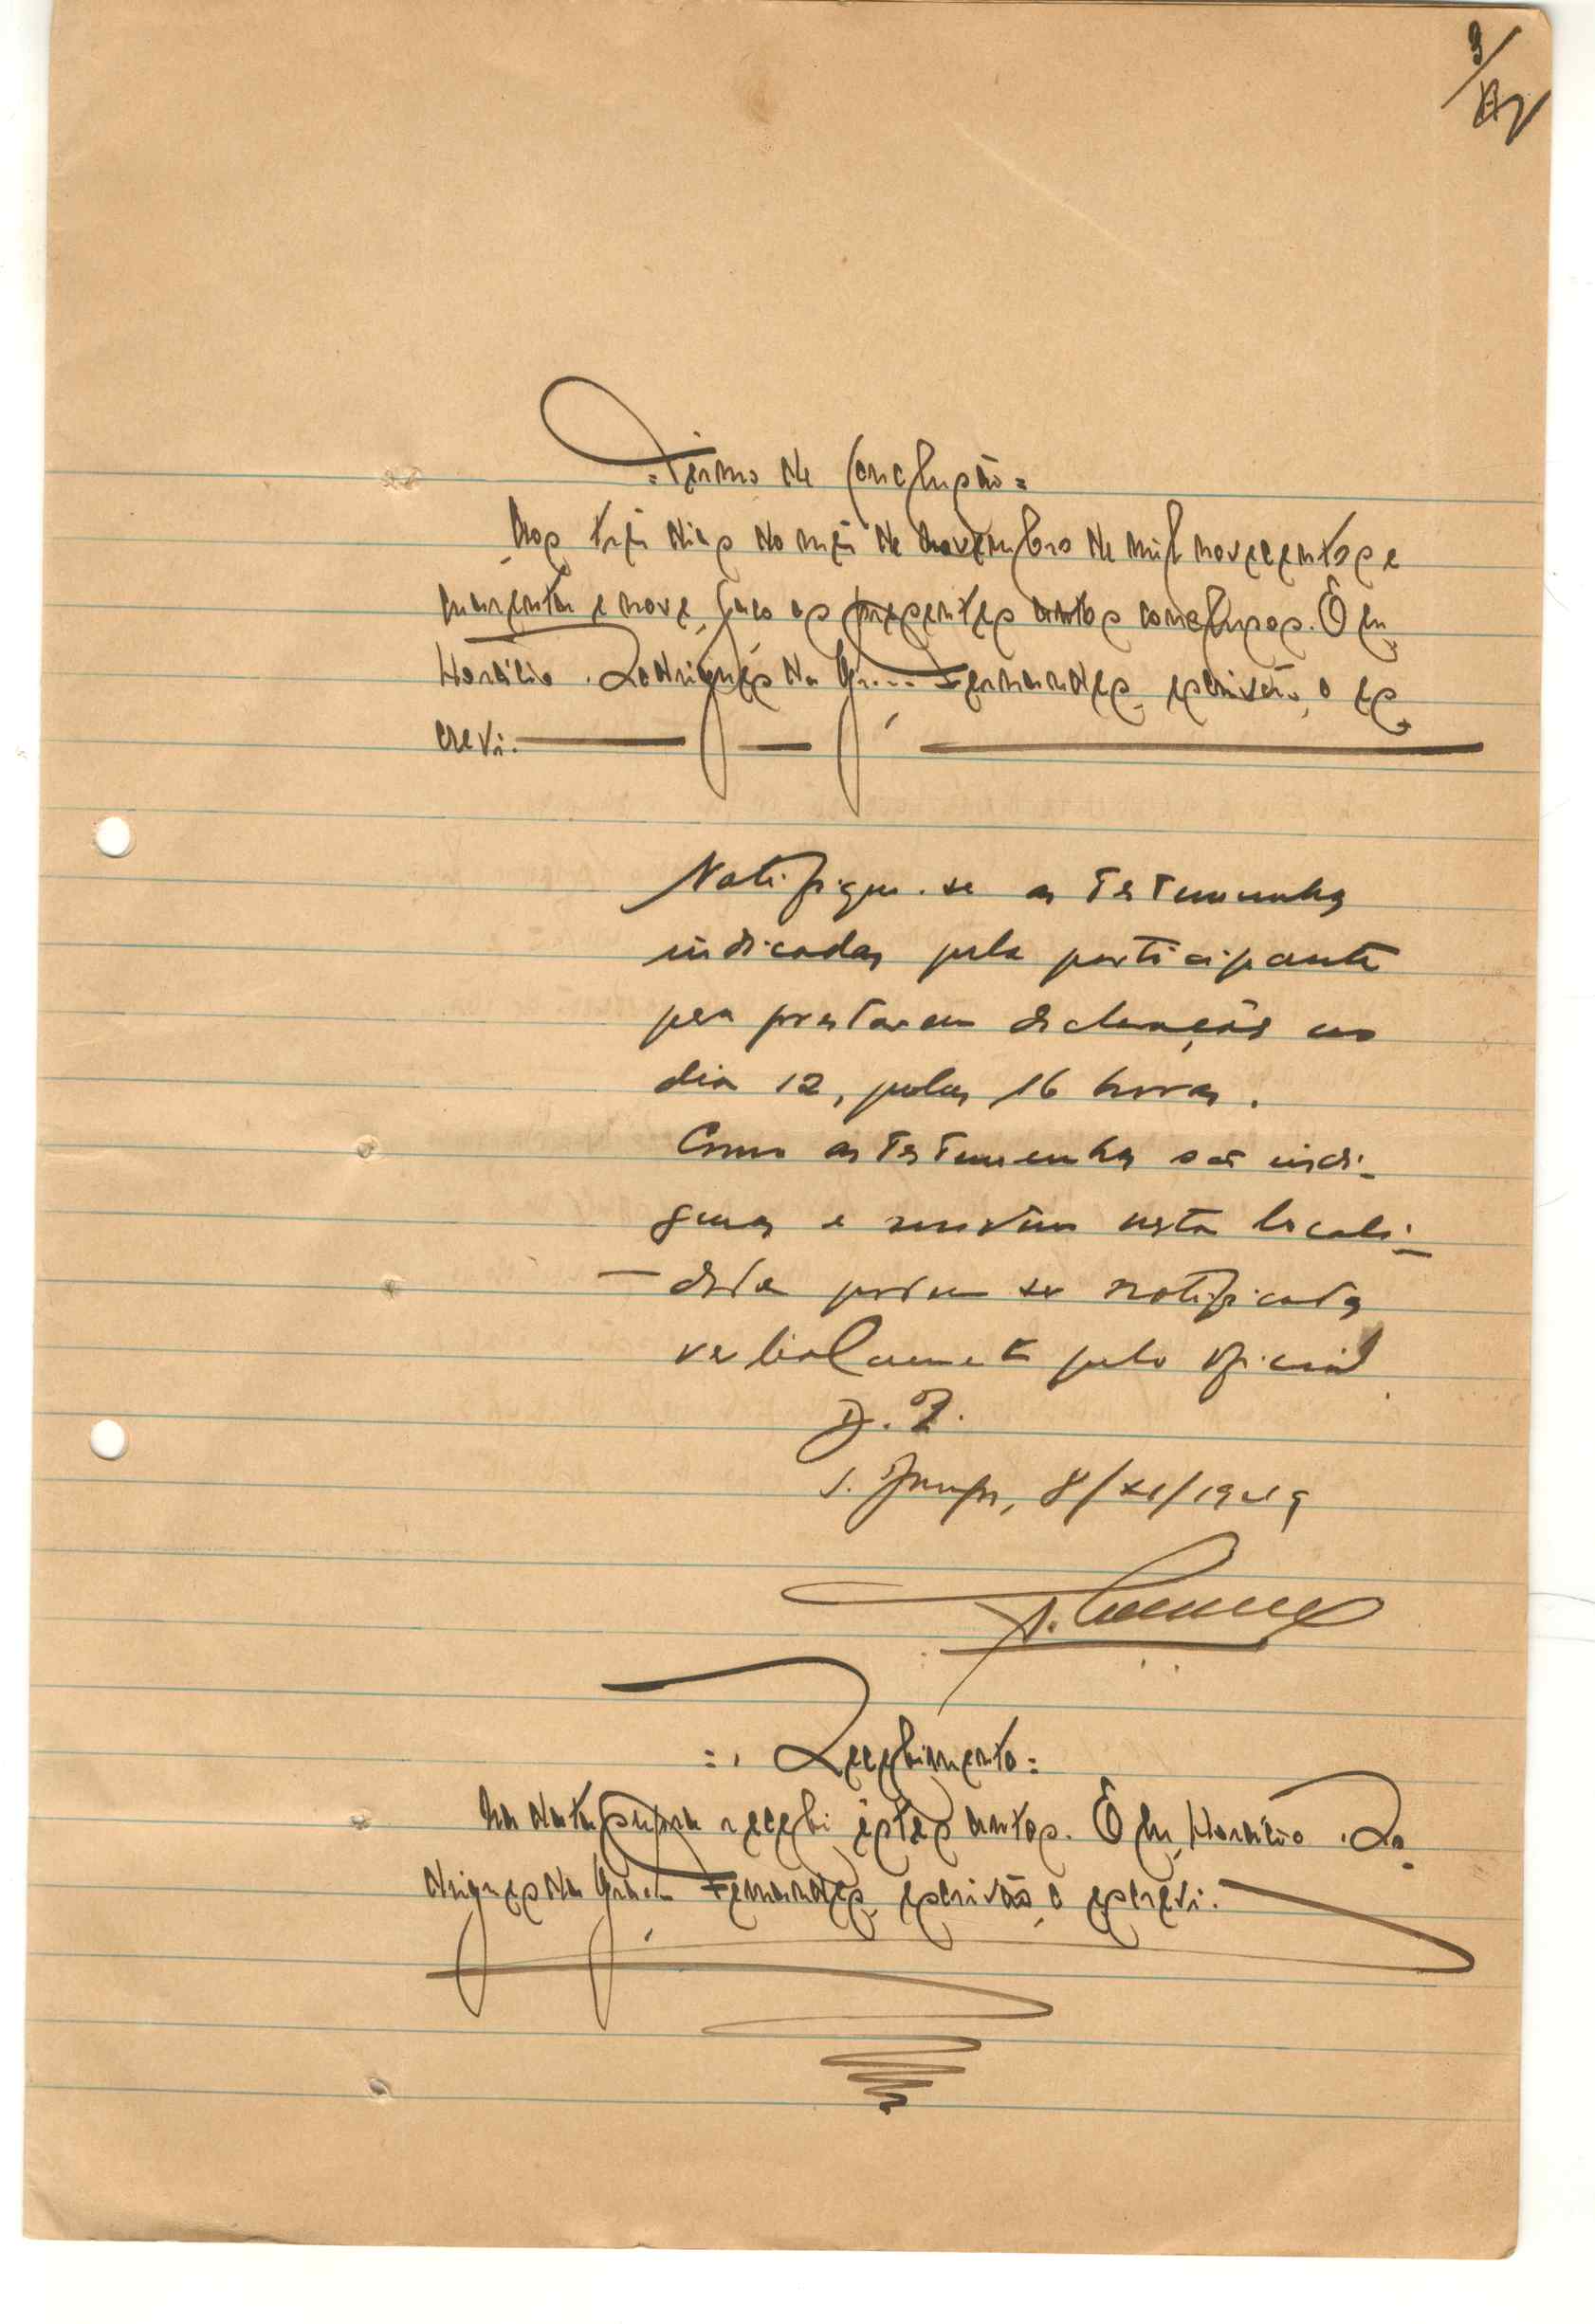 9
=Têrmo de Conclusão=
Aos três dias do mês de Novembro de mil novecentos e
quarenta e nove, faço os presentes autos conclusos. E eu,
Horácio Rodrigues da Graça Fernandes, escrivão, o es-
crevi.
Notifique-se as testemunhas
indicadas pela participante
para prestarem declarações no
dia 12, pelas 16 horas.
Como as testemunhas são indí-
genas e residem nesta locali-
-dade podem ser notificadas
verbalmente pelo oficial
D. J.
8/XI/1949
=Recebimento=
Na data supra recebi êstes autos. E eu, Horácio Ro-
drigues da Graça Fernandes, escrivão, o escrevi.